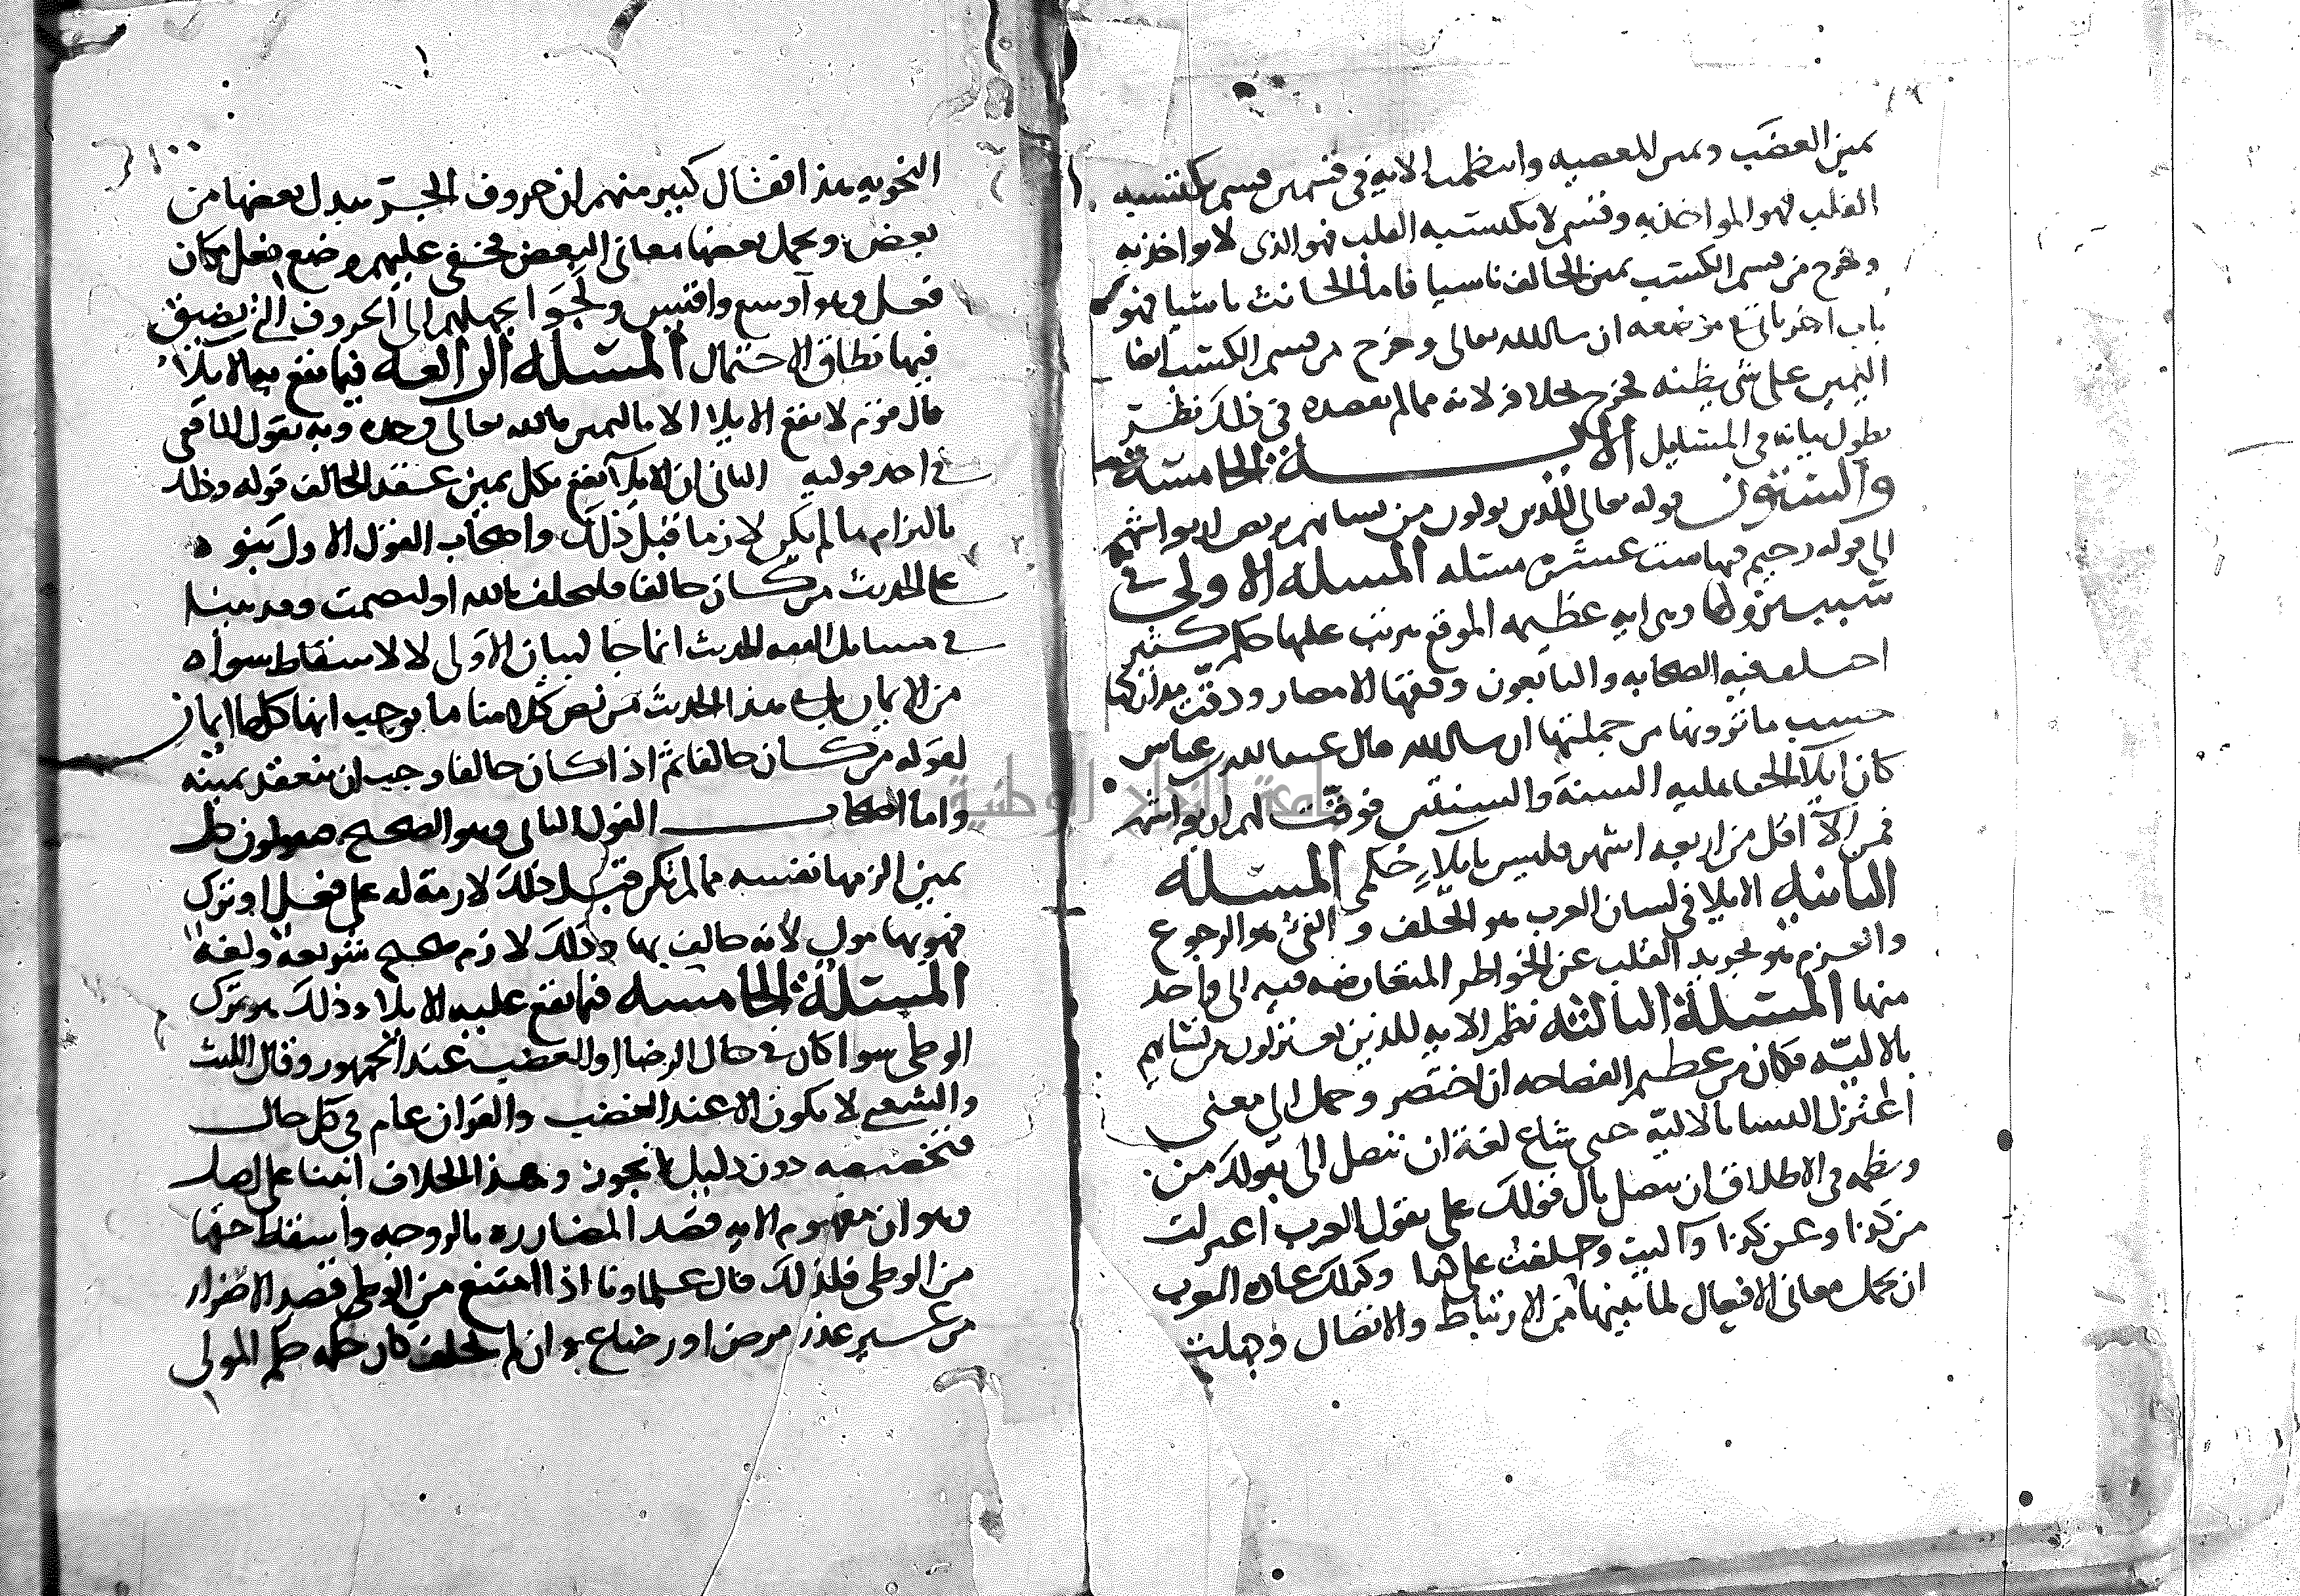 يمين الغضب ويمين المعصية وانتظمت الآية في قسمين قسم يكتسبه
القلب فهو المؤاخذ به وقسم لا يكتسبه القلب فهو الذي لا يؤاخذ به
وخرج من قسم الكسب يمين الحالف ناسيا فاما الحانث ناسيا فهو
باب اخر ياتي في موضعه ان شا الله تعالى وخرج من قسم الكسب ايضا
اليمين على شي يظنه فخرج بخلافه لانه مما لم يقصده وفي ذلك نظر
يطول بيانه في المسايل الاية الخامسة
والستون قوله تعالى للذين يولون من نسايهم تربص اربعة اشهر
الى قوله رحيم فيها ست عشرة مسئلة المسئلة الاولى في
سبب نزولها وهي اية عظيمة الموقع يترتب عليها حكم كبير
اختلف فيه الصحابة والتابعون وفقها الامصار ودقت مداركها
حسب ما ترونها من جملتها ان شا الله قال عبد الله بن عباس
كان ايلا الجاهلية السنة والسنتين فوقت لهم اربعة اشهر
فمن آلا اقل من اربعة اشهر فليس بايلاء حكمي المسئلة
الثانية الايلا في لسان العرب هو الحلف والفي هو الرجوع
والعزم هو تجريد القلب عن الخواطر المتعارضة فيه الى واحد
منها المسئلة الثالثة نظم الاية للذين يعتزلون من نسايهم
بالالية فكان من عظيم الفصاحة ان اختصر وحمل الى معنى
اعتزل النسا بالالية حتى شاع لغة ان تتصل الى بقولك من
ونظمه في الاطلاق ان يتصل بال قولك على يقول العرب اعتزلت
من كذا وعن كذا وآليت وحلفت على كذا وكذلك عادة العرب
ان تحمل معاني الافعال لما بينها من الارتباط والاتصال وجهلت
النحوية هذا فقال كبير منهم ان حروف الجر يبدل بعضها من
بعض ويحمل بعضها معاني البعض فخفي عليهم وضع فعل مكان
فعل وهو آوسع واقيس ولجوا بجهلهم الى الحروف التي يضيق
فيها نطاق الاحتمال المسئلة الرابعة فيما يقع به الايلا
قال قوم لا يقع الايلا الا باليمين بالله تعالى وحده وبه يقول الشافعي
في احد قوليه الثاني ان الايلا يقع بكل يمين عقد الحالف قوله وذلك
بالتزام ما لم يكن لازما قبل ذلك واصحاب القول الاول بنوه
على الحديث من كان حالفا فليحلف بالله او ليصمت وقد بينا
في مسايل الفقه الحديث انما جا لبيان الاولى لا لاسقاط سواه
من الايمان بل هذا الحديث من نص كلامنا ما يوجب انها كلها ايمان
لقوله من كان حالفا ثم اذا كان حالفا وجب ان ينعقد يمينه
واما اصحاب القول الثاني وهو الصحيح فيقولون كل
يمين الزمها نفسه مما لم تكن قبل ذلك لازمة له على فعل او ترك
فهو بها مول لانه حالف بها وذلك لازم صحيح شريعة ولغة
المسئلة الخامسة فيما يقع عليه الايلا وذلك هو ترك
الوطي سوا كان في حال الرضا او الغضب عند الجمهور وقال الليث
والشعبي لا يكون الا عند الغضب والقران عام في كل حال
فتخصيصه دون دليل لا يجوز وهذا الخلاف انبنا على اصل
وهو ان مفهوم الاية قصد المضاررة بالزوجة واسقاط حقها
من الوطي فلذلك قال علماونا اذا امتنع من الوطي قصد الاضرار
من غير عذر مرض او رضاع وان لم يحلف كان حكمه حكم المولي